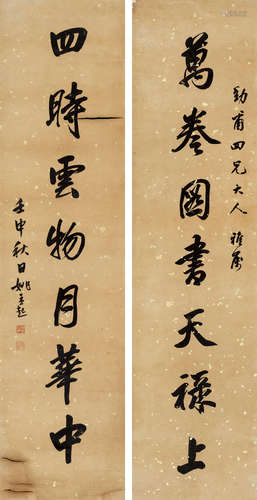 萬卷圖書天祿上
勁甫四兄大人雅屬
四時雲物月華中
壬申秋日姚孟起